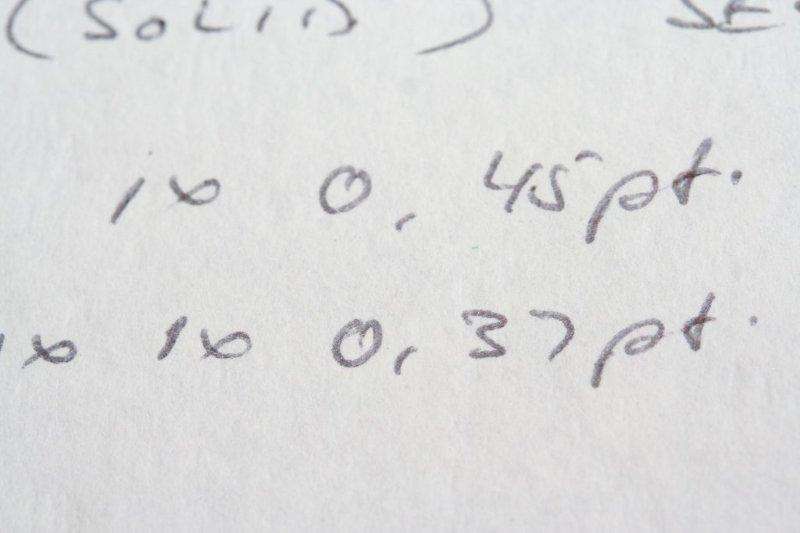 (SOLID)
1x 0,45pt.
1x 0,37pt.